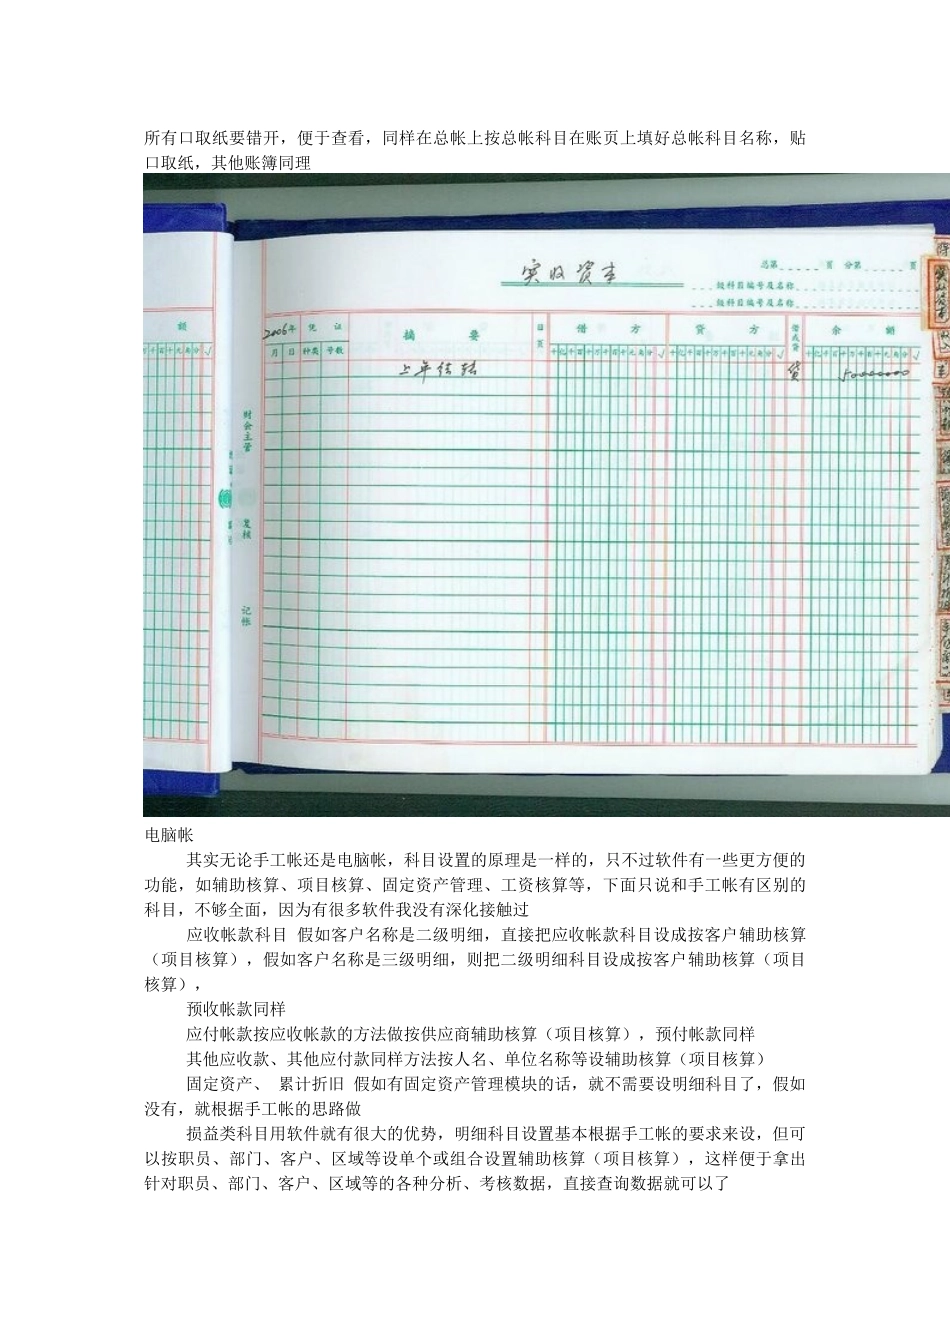 所有口取纸要错开，便于查看，同样在总帐上按总帐科目在账页上填好总帐科目名称，贴
口取纸，其他账簿同理
实收资本
总第 页 分第 页
级科目编号及名称
级科目编号及名称
额
2006年 凭 证 摘 要 日页 借 方 贷 方 借或贷 余 额
月 日 种类 号数 千亿千百十万千百十元角分√ 千亿千百十万千百十元角分√ 千亿千百十万千百十元角分√
上年结转 贷 50000000
财会主管
复核
记帐
电脑帐
其实无论手工帐还是电脑帐，科目设置的原理是一样的，只不过软件有一些更方便的
功能，如辅助核算、项目核算、固定资产管理、工资核算等，下面只说和手工帐有区别的
科目，不够全面，因为有很多软件我没有深化接触过
应收帐款科目 假如客户名称是二级明细，直接把应收帐款科目设成按客户辅助核算
（项目核算），假如客户名称是三级明细，则把二级明细科目设成按客户辅助核算（项目
核算），
预收帐款同样
应付帐款按应收帐款的方法做按供应商辅助核算（项目核算），预付帐款同样
其他应收款、其他应付款同样方法按人名、单位名称等设辅助核算（项目核算）
固定资产、 累计折旧 假如有固定资产管理模块的话，就不需要设明细科目了，假如
没有，就根据手工帐的思路做
损益类科目用软件就有很大的优势，明细科目设置基本根据手工帐的要求来设，但可
以按职员、部门、客户、区域等设单个或组合设置辅助核算（项目核算），这样便于拿出
针对职员、部门、客户、区域等的各种分析、考核数据，直接查询数据就可以了